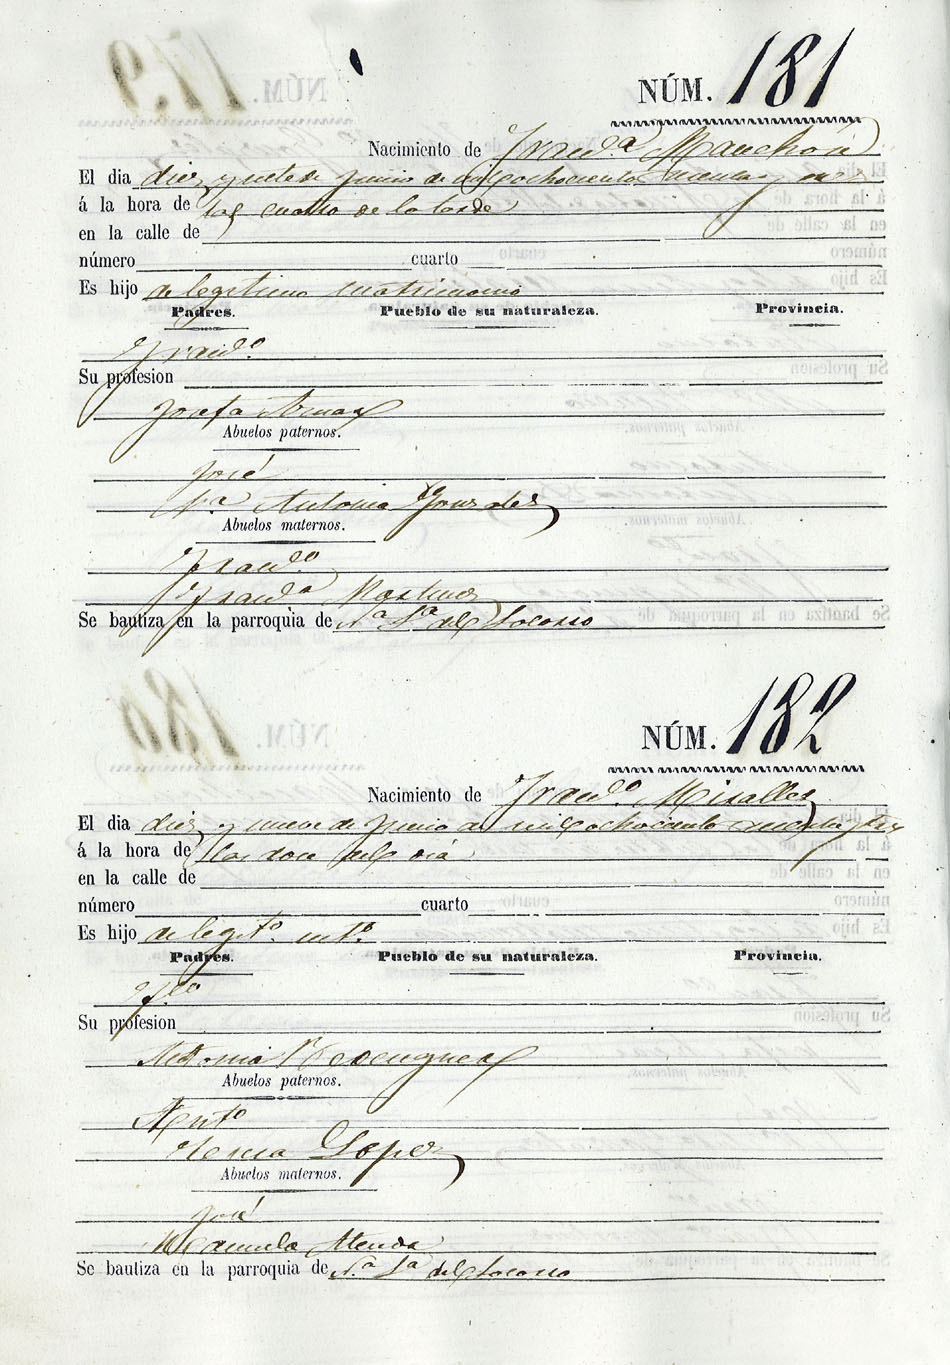 NÚM. 181
Nacimiento de Fran.ca Manchón
El dia diez y siete de Junio de mil ochocientos cuenta y
á la hora de las cuatro de la tarde
en la calle de
número cuarto
Es hijo de legitimo matrimonio
Padres. Pueblo de su naturaleza. Provincia.
Fran.co
Su profesion
Josefa Arnao
Abuelos paternos.
José
M.a Antonia Gonzalez
Abuelos maternos.
Fran.co
Fran.ca Martinez
Se bautiza en la parroquia de N.a S.a del Socorro
NÚM. 182
Nacimiento de Fran.co Miralles
El dia diez y nueve de Junio de mil ochociento cincuenta y
á la hora de las doce del dia
en la calle de
número cuarto
Es hijo de legit.o mt.o
Padres. Pueblo de su naturaleza. Provincia.
F.co
Su profesion
Antonia
Abuelos paternos.
Ant.o
Teresa Lopez
Abuelos maternos.
José
Manuela
Se bautiza en la parroquia de N.a S.a del Socorro